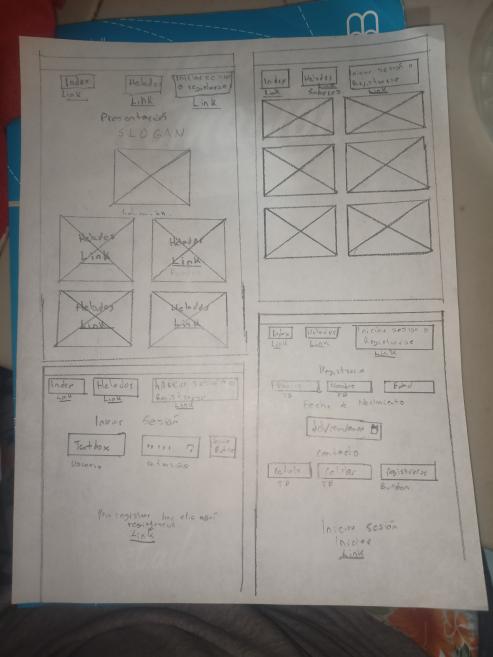 Index
Link
Helados
Link
Iniciar sesion
o registrarse
Link
Presentación
SLOGAN
Helados
Link
Helados
Link
Helados
Link
Helados
Link
Index
Link
Helados
Sabores
Iniciar sesión o
Registrarse
Link
Index
Link
Helados
Link
Iniciar sesión o
Registrarse
Link
Iniciar Sesión
Textbox
Usuario
Para registrar haz clic aquí
Link
Index
Link
Helados
Link
Iniciar sesión o
Registrarse
Link
Registrarse
Nombre
Edad
Fecha de Nacimiento
Contacto
Celular
Registrarse
Button
Iniciar sesión
Iniciar
Link